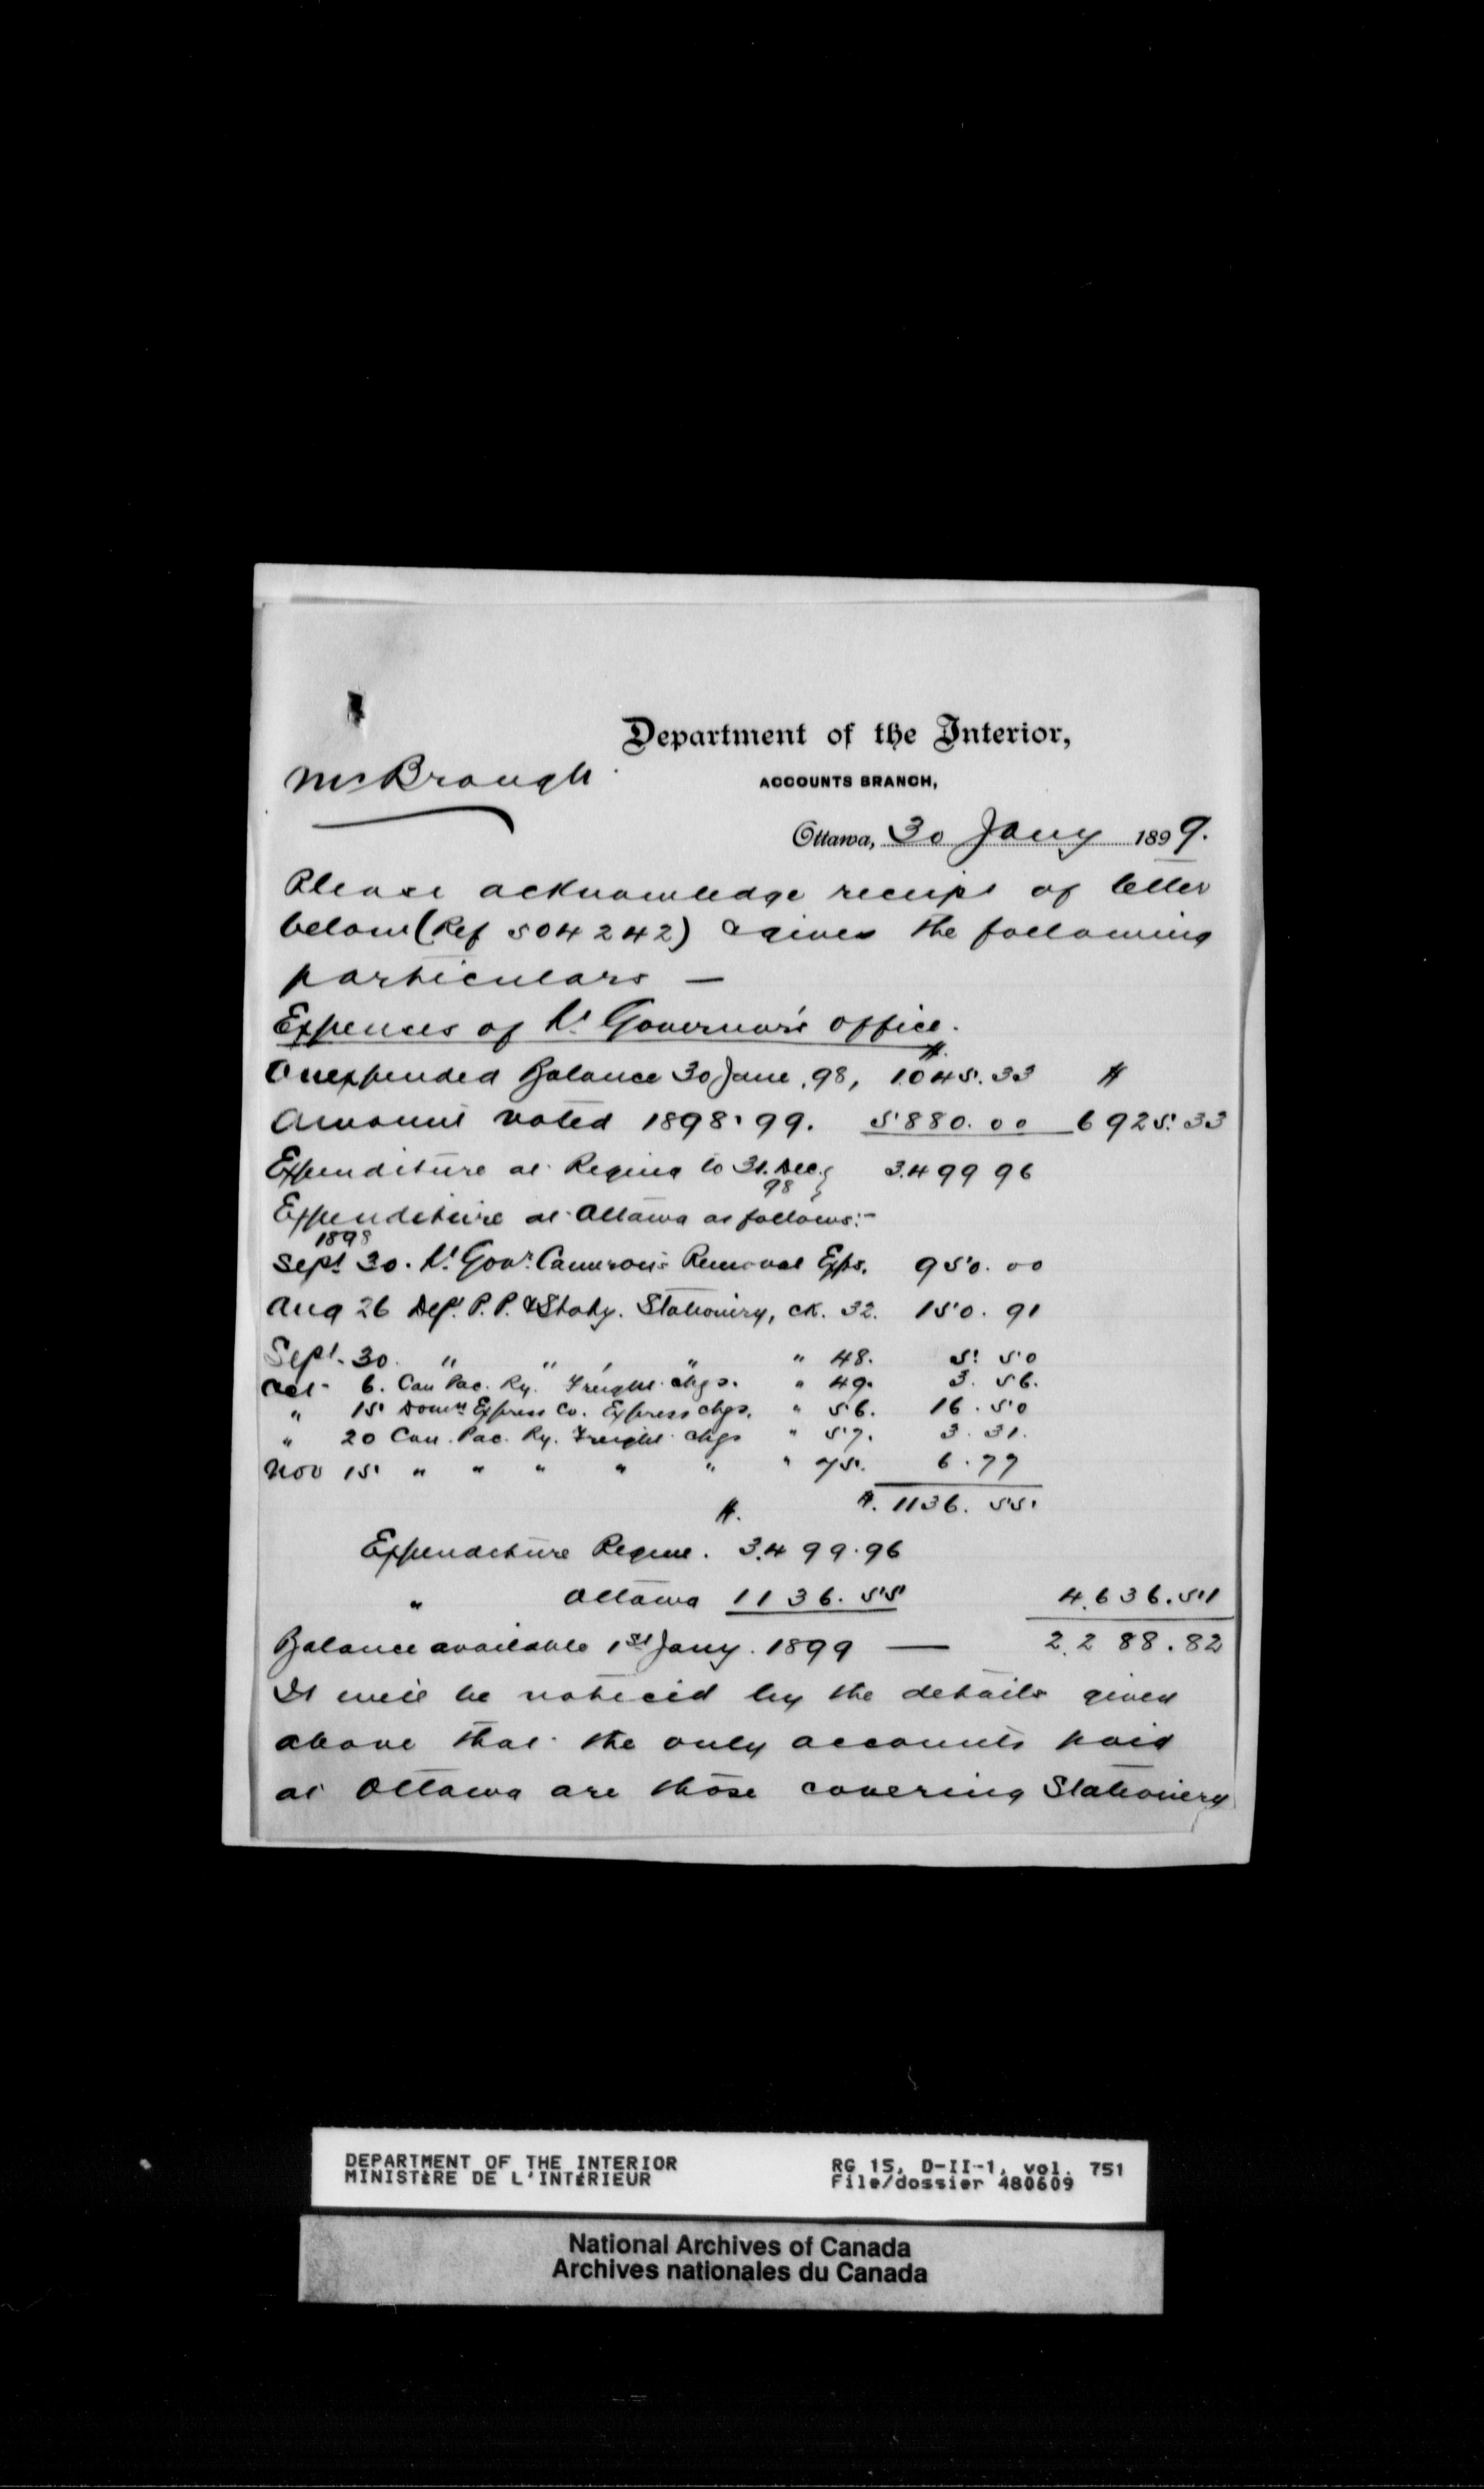 Department of the Interior,
Mr Brough
ACCOUNTS BRANCH,
Ottawa, 30 Jany 1899.
Please acknowledge receipt of letter
below (Ref 504242) & give the following
particulars —
Expenses of Lt Governor's office.
Unexpended Balance 30 June, 98, $ 1.045.33 $
Amount voted 1898-99. 5880.00 6925.33
Expenditure at Regina to 31. Dec. 98 } 3.499 96
Expenditure at Ottawa as follows:-
1898
Sept 30. Lt Govr Cameron's Removal Exps. 950.00
Aug 26 Dept. P.P. & Staty. Stationery, ck. 32. 150.91
Sept. 30. " " " " 48. 5.50
Oct 6. Can Pac. Ry. Freight chgs. " 49. 3.56.
" 15 Domn Express Co. Express chgs. " 56. 16.50
" 20 Can. Pac. Ry. Freight chgs " 57. 3.31.
Nov 15 " " " " " " 75. 6.77
$. $. 1136.55.
Expenditure Regina. 3.499.96
" Ottawa 1136.55 4.636.51
Balance available 1st Jany. 1899 — 2.288.82
It will be noticed by the details given
above that the only accounts paid
at Ottawa are those covering Stationery
DEPARTMENT OF THE INTERIOR
MINISTÈRE DE L'INTÉRIEUR
RG 15, D-II-1, vol. 751
File/dossier 480609
National Archives of Canada
Archives nationales du Canada